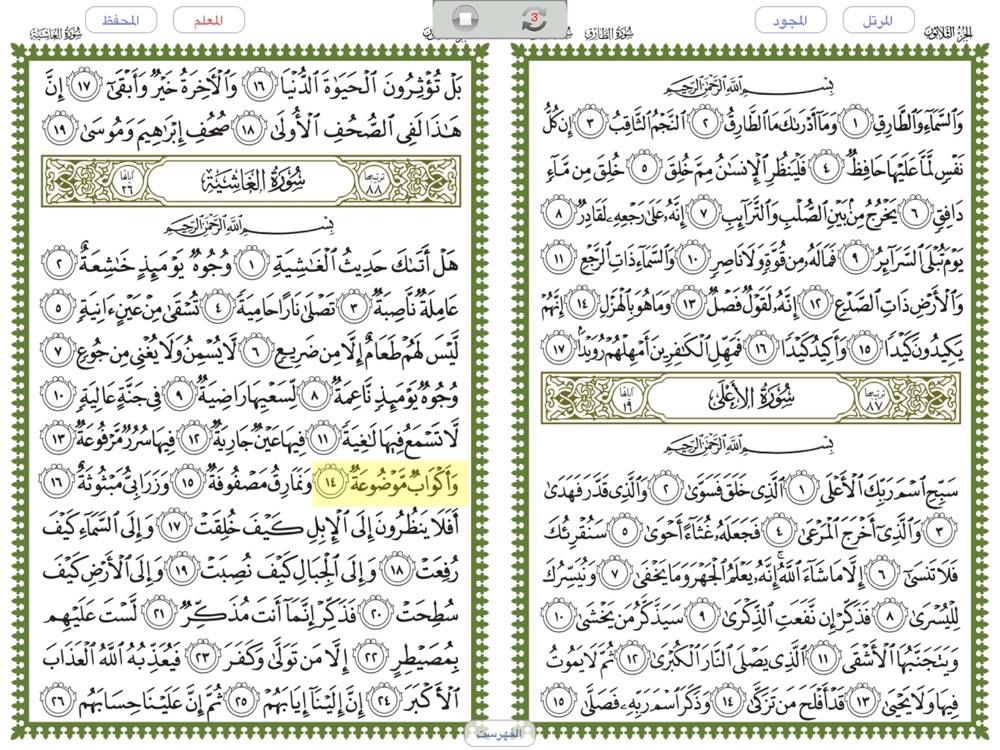 المحفظ
المعلم
3
المجود
المرتل
سُورَةُ الغَاشِيَة
سُورَةُ الطَّارِق
الجُزءُ الثَّلاثُون
بِسْمِ ٱللَّهِ ٱلرَّحْمَٰنِ ٱلرَّحِيمِ
وَٱلسَّمَآءِ وَٱلطَّارِقِ ١ وَمَآ أَدْرَىٰكَ مَا ٱلطَّارِقُ ٢ ٱلنَّجْمُ ٱلثَّاقِبُ ٣ إِن كُلُّ
نَفْسٍ لَّمَّا عَلَيْهَا حَافِظٌ ٤ فَلْيَنظُرِ ٱلْإِنسَٰنُ مِمَّ خُلِقَ ٥ خُلِقَ مِن مَّآءٍ
دَافِقٍ ٦ يَخْرُجُ مِنۢ بَيْنِ ٱلصُّلْبِ وَٱلتَّرَآئِبِ ٧ إِنَّهُۥ عَلَىٰ رَجْعِهِۦ لَقَادِرٌ ٨
يَوْمَ تُبْلَى ٱلسَّرَآئِرُ ٩ فَمَا لَهُۥ مِن قُوَّةٍ وَلَا نَاصِرٍ ١٠ وَٱلسَّمَآءِ ذَاتِ ٱلرَّجْعِ ١١
وَٱلْأَرْضِ ذَاتِ ٱلصَّدْعِ ١٢ إِنَّهُۥ لَقَوْلٌ فَصْلٌ ١٣ وَمَا هُوَ بِٱلْهَزْلِ ١٤ إِنَّهُمْ
يَكِيدُونَ كَيْدًا ١٥ وَأَكِيدُ كَيْدًا ١٦ فَمَهِّلِ ٱلْكَٰفِرِينَ أَمْهِلْهُمْ رُوَيْدًۢا ١٧
ترتيبها ٨٧ سُورَةُ الأَعْلَىٰ آياتها ١٩
بِسْمِ ٱللَّهِ ٱلرَّحْمَٰنِ ٱلرَّحِيمِ
سَبِّحِ ٱسْمَ رَبِّكَ ٱلْأَعْلَى ١ ٱلَّذِى خَلَقَ فَسَوَّىٰ ٢ وَٱلَّذِى قَدَّرَ فَهَدَىٰ
٣ وَٱلَّذِىٓ أَخْرَجَ ٱلْمَرْعَىٰ ٤ فَجَعَلَهُۥ غُثَآءً أَحْوَىٰ ٥ سَنُقْرِئُكَ
فَلَا تَنسَىٰٓ ٦ إِلَّا مَا شَآءَ ٱللَّهُ ۚ إِنَّهُۥ يَعْلَمُ ٱلْجَهْرَ وَمَا يَخْفَىٰ ٧ وَنُيَسِّرُكَ
لِلْيُسْرَىٰ ٨ فَذَكِّرْ إِن نَّفَعَتِ ٱلذِّكْرَىٰ ٩ سَيَذَّكَّرُ مَن يَخْشَىٰ ١٠
وَيَتَجَنَّبُهَا ٱلْأَشْقَى ١١ ٱلَّذِى يَصْلَى ٱلنَّارَ ٱلْكُبْرَىٰ ١٢ ثُمَّ لَا يَمُوتُ
فِيهَا وَلَا يَحْيَىٰ ١٣ قَدْ أَفْلَحَ مَن تَزَكَّىٰ ١٤ وَذَكَرَ ٱسْمَ رَبِّهِۦ فَصَلَّىٰ ١٥
بَلْ تُؤْثِرُونَ ٱلْحَيَوٰةَ ٱلدُّنْيَا ١٦ وَٱلْأَخِرَةُ خَيْرٌ وَأَبْقَىٰٓ ١٧ إِنَّ
هَٰذَا لَفِى ٱلصُّحُفِ ٱلْأُولَىٰ ١٨ صُحُفِ إِبْرَٰهِيمَ وَمُوسَىٰ ١٩
ترتيبها ٨٨ سُورَةُ الغَاشِيَة آياتها ٢٦
بِسْمِ ٱللَّهِ ٱلرَّحْمَٰنِ ٱلرَّحِيمِ
هَلْ أَتَىٰكَ حَدِيثُ ٱلْغَٰشِيَةِ ١ وُجُوهٌ يَوْمَئِذٍ خَٰشِعَةٌ ٢
عَامِلَةٌ نَّاصِبَةٌ ٣ تَصْلَىٰ نَارًا حَامِيَةً ٤ تُسْقَىٰ مِنْ عَيْنٍ ءَانِيَةٍ ٥
لَّيْسَ لَهُمْ طَعَامٌ إِلَّا مِن ضَرِيعٍ ٦ لَّا يُسْمِنُ وَلَا يُغْنِى مِن جُوعٍ ٧
وُجُوهٌ يَوْمَئِذٍ نَّاعِمَةٌ ٨ لِّسَعْيِهَا رَاضِيَةٌ ٩ فِى جَنَّةٍ عَالِيَةٍ ١٠
لَّا تَسْمَعُ فِيهَا لَٰغِيَةً ١١ فِيهَا عَيْنٌ جَارِيَةٌ ١٢ فِيهَا سُرُرٌ مَّرْفُوعَةٌ ١٣
وَأَكْوَابٌ مَّوْضُوعَةٌ ١٤ وَنَمَارِقُ مَصْفُوفَةٌ ١٥ وَزَرَابِىُّ مَبْثُوثَةٌ ١٦
أَفَلَا يَنظُرُونَ إِلَى ٱلْإِبِلِ كَيْفَ خُلِقَتْ ١٧ وَإِلَى ٱلسَّمَآءِ كَيْفَ
رُفِعَتْ ١٨ وَإِلَى ٱلْجِبَالِ كَيْفَ نُصِبَتْ ١٩ وَإِلَى ٱلْأَرْضِ كَيْفَ
سُطِحَتْ ٢٠ فَذَكِّرْ إِنَّمَآ أَنتَ مُذَكِّرٌ ٢١ لَّسْتَ عَلَيْهِم
بِمُصَيْطِرٍ ٢٢ إِلَّا مَن تَوَلَّىٰ وَكَفَرَ ٢٣ فَيُعَذِّبُهُ ٱللَّهُ ٱلْعَذَابَ
ٱلْأَكْبَرَ ٢٤ إِنَّ إِلَيْنَآ إِيَابَهُمْ ٢٥ ثُمَّ إِنَّ عَلَيْنَا حِسَابَهُم ٢٦
الفهرست